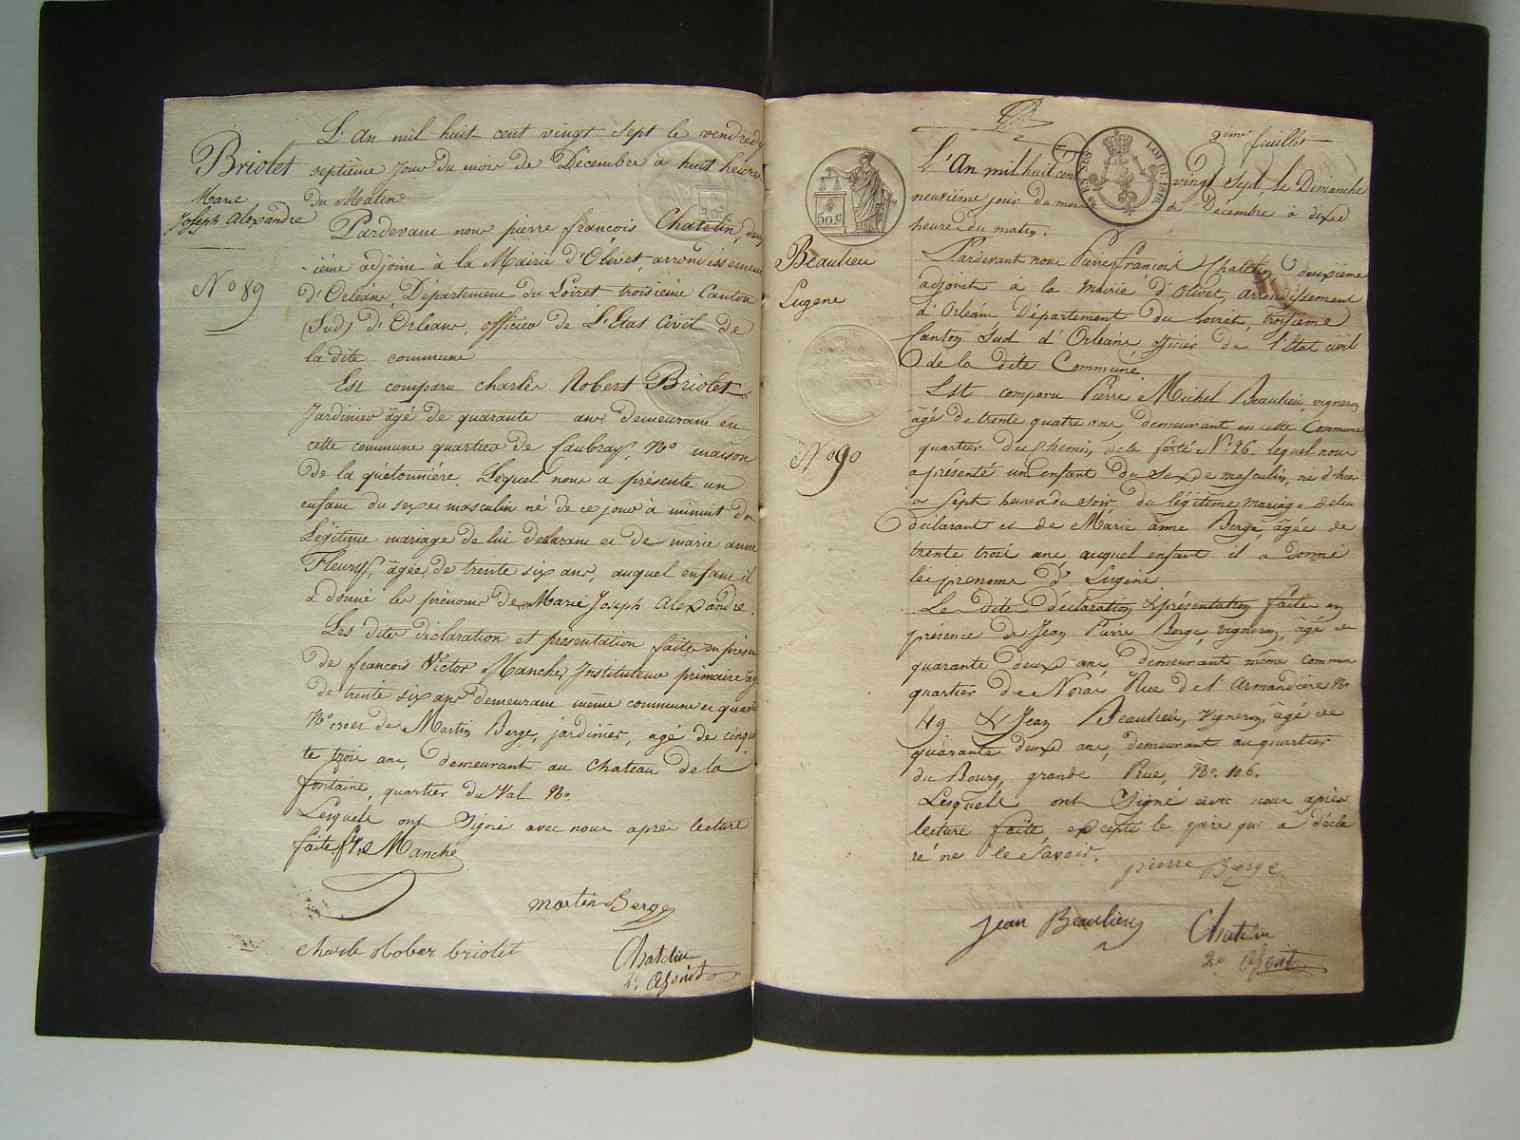 L'An mil huit cent vingt sept le vendredy
Briolet
septième jour du mois de Décembre à huit heures
Marie
du Matin
Joseph Alexandre
Pardevant nous pierre françois Chatelin, deux
N° 89
-ième adjoint à la Mairie d'Olivet, arrondissement
d'Orléans, Département du Loiret troisième Canton
(Sud) d'Orléans, officier de L'Etat Civil de
la dite commune
Est comparu charles Robert Briolet
Jardinier âgé de quarante ans demeurant en
cette commune quartier de Caubray, N° maison
De la quétonnière. Lequel nous a présenté un
enfant du sexe masculin né de ce jour à minuit du
Légitime mariage de lui déclarant et de marie anne
Fleury, âgée de trente six ans, auquel enfant il
a donné les prénoms de Marie Joseph Alexandre.
Les dites déclaration et présentation faites en présen
de françois Victor Manché, Instituteur primaire âgé
de trente six ans demeurant même commune et quart
N° et de Martin Berge, jardinier, agé de cinquan
te trois ans, demeurant au chateau de la
fontaine, quartier du Val N°.
Lesquels ont Signé avec nous après lecture
faite. f. V. Manché
martin Berge
charle Rober briolet
Chatelin
2e adjoint
2ème feuillet
L'An mil huit cent vingt sept le Dimanche
neuvième jour du mois de Décembre à dix
heures du matin.
50 c
LOI DE 1816
Beaulieu
Eugène
N° 90
Pardevant nous Pierre françois Chatelin deuxième
adjoint a la mairie d'Olivet, arrondissement
d'Orléans Département du Loiret, troisième
Canton Sud d'Orléans officier de l'Etat civil
de la dite Commune
Est comparu Pierre Michel Beaulieu, vigneron
âgé de trente quatre ans demeurant en cette Commune
quartier du Chemin de la ferté N° 26. lequel nous
a présenté un enfant du sexe masculin, né d'hier
a Sept heures du soir, du légitime mariage de lui
déclarant et de Marie anne Berge, âgée de
trente trois ans auquel enfant il a donné
les prénoms d'Eugène
Le dite déclaration & présentation faite en
présence de Jean Pierre Berge, vigneron, âgé de
quarante deux ans demeurant même commun
quartier de Noras Rue de l'Armandière N°
49 & Jean Beaulieu, vigneron, âgé de
quarante deux ans, demeurant au quartier
du Bourg, grande Rue, N° 106.
Lesquels ont Signé avec nous après
lecture faite, excepté le père qui a décla
ré ne le Savoir.
pierre Berge
Jean Beaulieu
Chatelin
2e adjoint